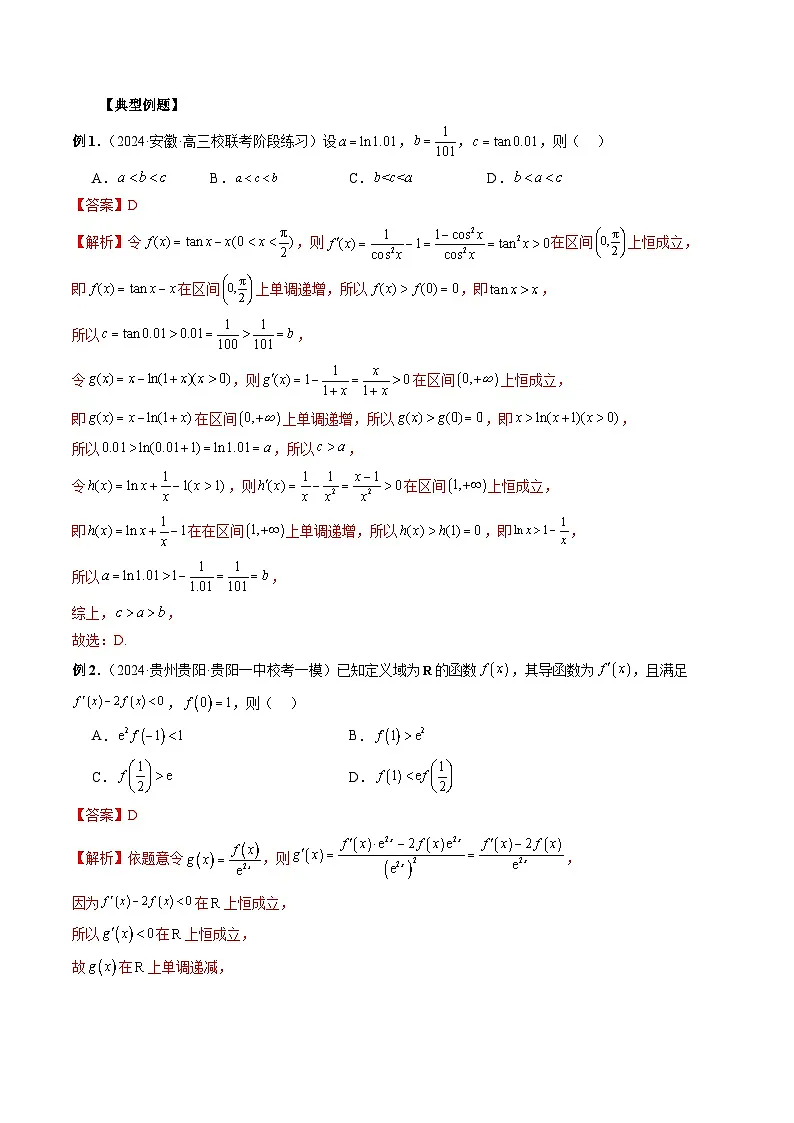 【典型例题】
例1.（2024·安徽·高三校联考阶段练习）设 a = ln1.01，b = 1/101，c = tan0.01，则（　）
A．a < b < c　B．a < c < b　C．b<c<a　D．b < a < c
【答案】D
【解析】令 f(x) = tan x − x(0 < x < π/2)，则 f′(x) = 1/cos²x − 1 = (1 − cos²x)/cos²x = tan²x > 0在区间(0, π/2)上恒成立，
即 f(x) = tan x − x在区间(0, π/2)上单调递增，所以 f(x) > f(0) = 0，即 tan x > x，
所以 c = tan0.01 > 0.01 = 1/100 > 1/101 = b，
令 g(x) = x − ln(1 + x)(x > 0)，则 g′(x) = 1 − 1/(1 + x) = x/(1 + x) > 0 在区间(0,+∞)上恒成立，
即 g(x) = x − ln(1 + x) 在区间(0,+∞)上单调递增，所以 g(x) > g(0) = 0，即 x > ln(x + 1)(x > 0)，
所以 0.01 > ln(0.01 + 1) = ln1.01 = a，所以 c > a，
令 h(x) = ln x + 1/x − 1(x > 1)，则 h′(x) = 1/x − 1/x² = (x − 1)/x² > 0在区间(1,+∞)上恒成立，
即 h(x) = ln x + 1/x − 1在在区间(1,+∞)上单调递增，所以 h(x) > h(1) = 0，即 ln x > 1 − 1/x，
所以 a = ln1.01 > 1 − 1/1.01 = 1/101 = b，
综上，c > a > b，
故选：D.
例2.（2024·贵州贵阳·贵阳一中校考一模）已知定义域为R的函数 f(x)，其导函数为 f′(x)，且满足
f′(x) − 2f(x) < 0，f(0) = 1，则（　）
A．e²f(−1) < 1　B．f(1) > e²
C．f(1/2) > e　D．f(1) < ef(1/2)
【答案】D
【解析】依题意令 g(x) = f(x)/e²ˣ，则 g′(x) = (f′(x)·e²ˣ − 2f(x)e²ˣ)/(e²ˣ)² = (f′(x) − 2f(x))/e²ˣ，
因为 f′(x) − 2f(x) < 0在R上恒成立，
所以 g′(x) < 0在R上恒成立，
故 g(x)在R上单调递减，